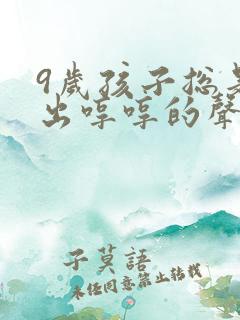 9歲孩子總是
出哼哼的聲
子莫語
未經同意禁止轉載